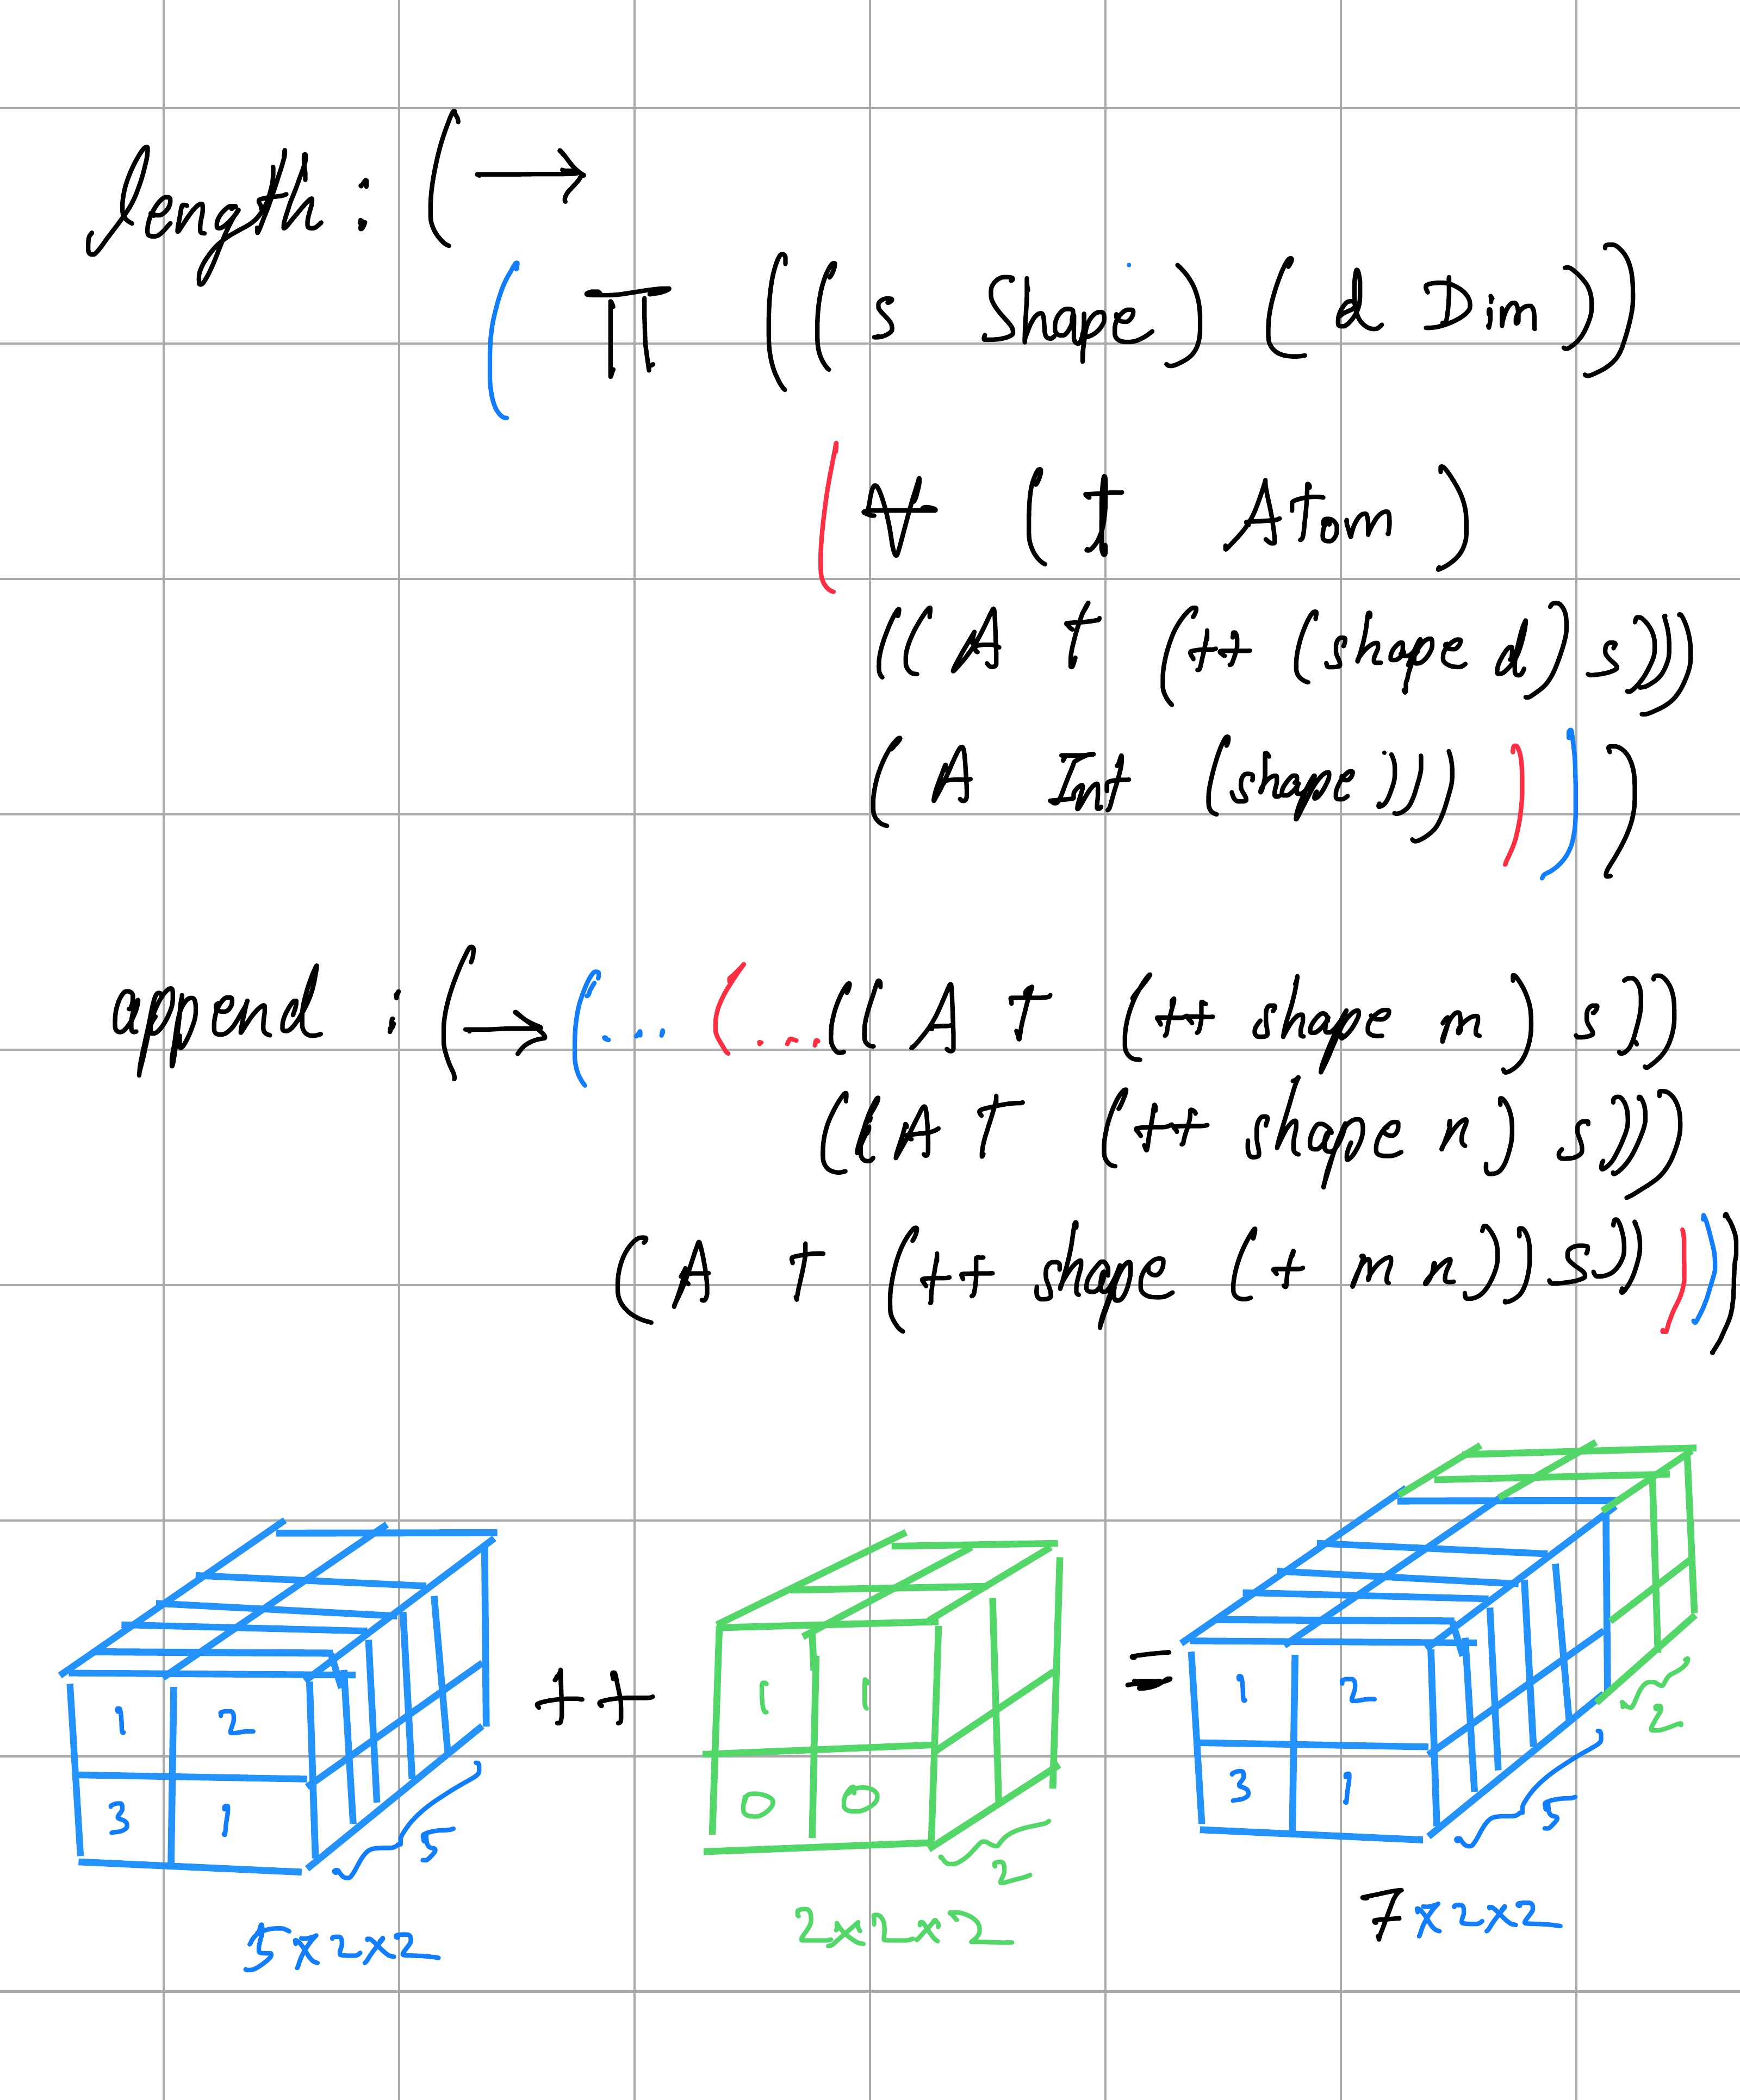 length : ( →
( Π ((s Shape) (d Dim))
( ∀ (T Atom)
((A T (++ (shape d) s)))
(A Int (shape))) ) ) )
append : ( → (... (... ((A T (++ shape m) s))
((A T (++ shape n) s)))
(A T (++ shape (+ m n)) s)) ) ) )
1 2
3 1
5
5x2x2
++
1 1
0 0
2
2x2x2
=
1 2
3 1
5
2
7x2x2